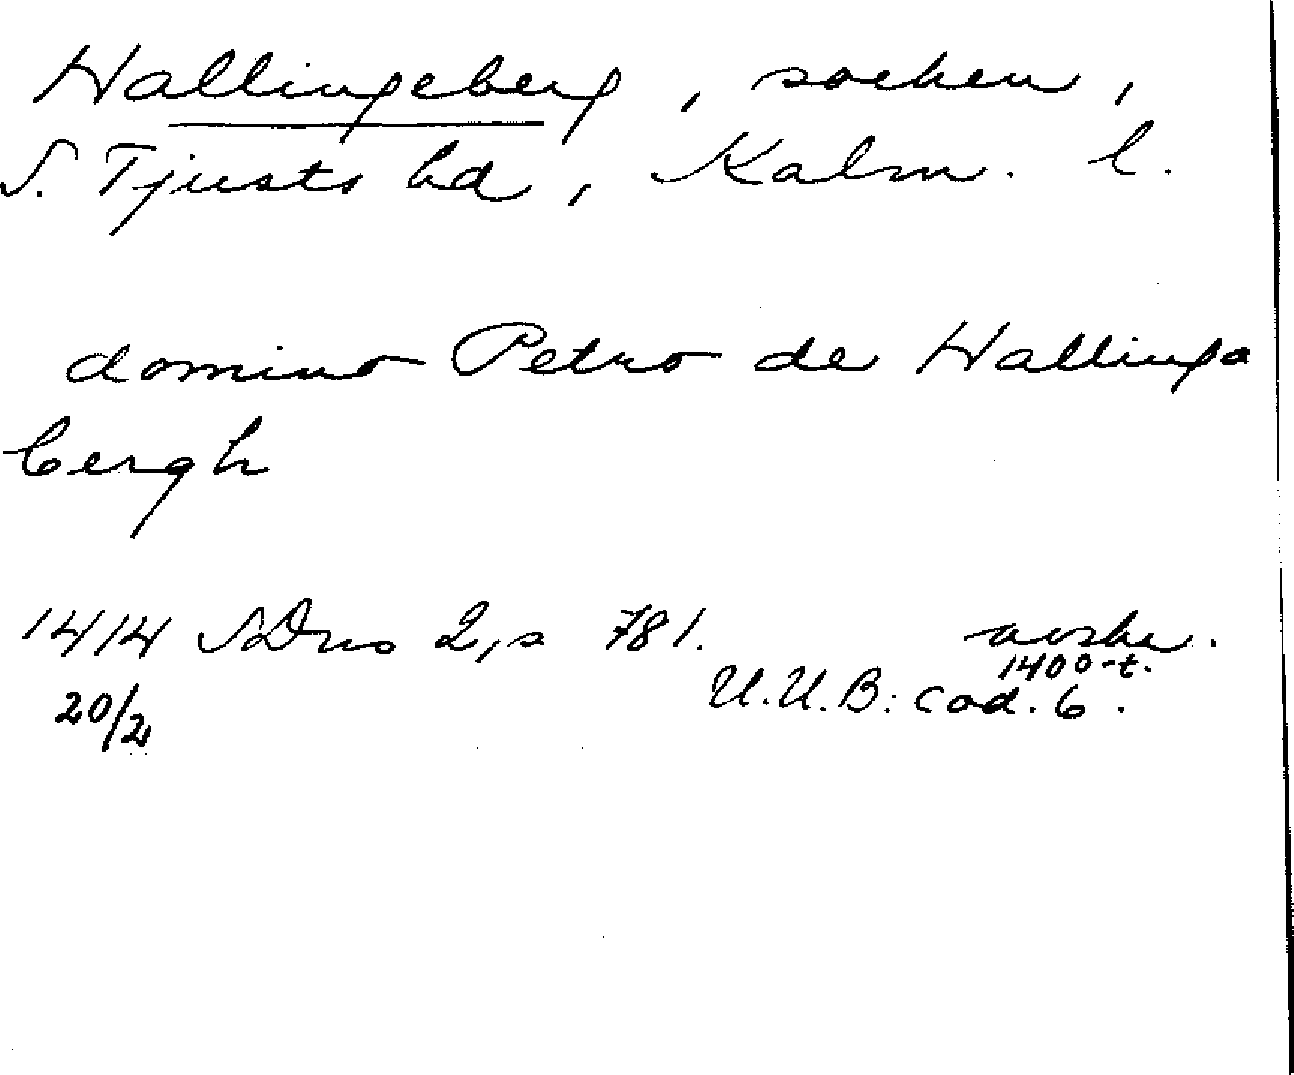 Hallingeberg, socken,
S. Tjusts hd, Kalm. l.
domino Petro de Hallinga
bergh
1414 SDns 2, s 781. avskr.
1400-t.
20/2 U.U.B: Cod. 6.